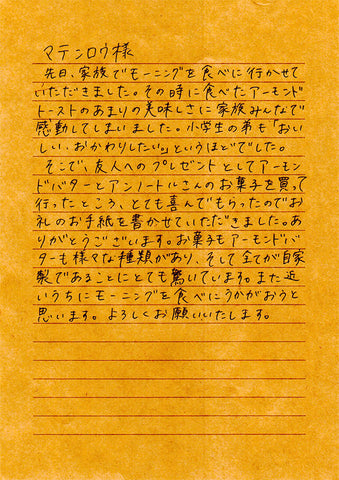 マテンロウ様
先日、家族でモーニングを食べに行かせて
いただきました。その時に食べたアーモンド
トーストのあまりの美味しさに家族みんなで
感動してしまいました。小学生の弟も「おい
しい、おかわりしたい」というほどでした。
そこで、友人へのプレゼントとしてアーモン
ドバターとアンノートルさんのお菓子を買って
行ったところ、とても喜んでもらったのでお
礼のお手紙を書かせていただきました。あ
りがとうございます。お菓子もアーモンドバ
ターも様々な種類があり、そして全てが自家
製であることにとても驚いています。また近
いうちにモーニングを食べにうかがおうと
思います。よろしくお願いいたします。